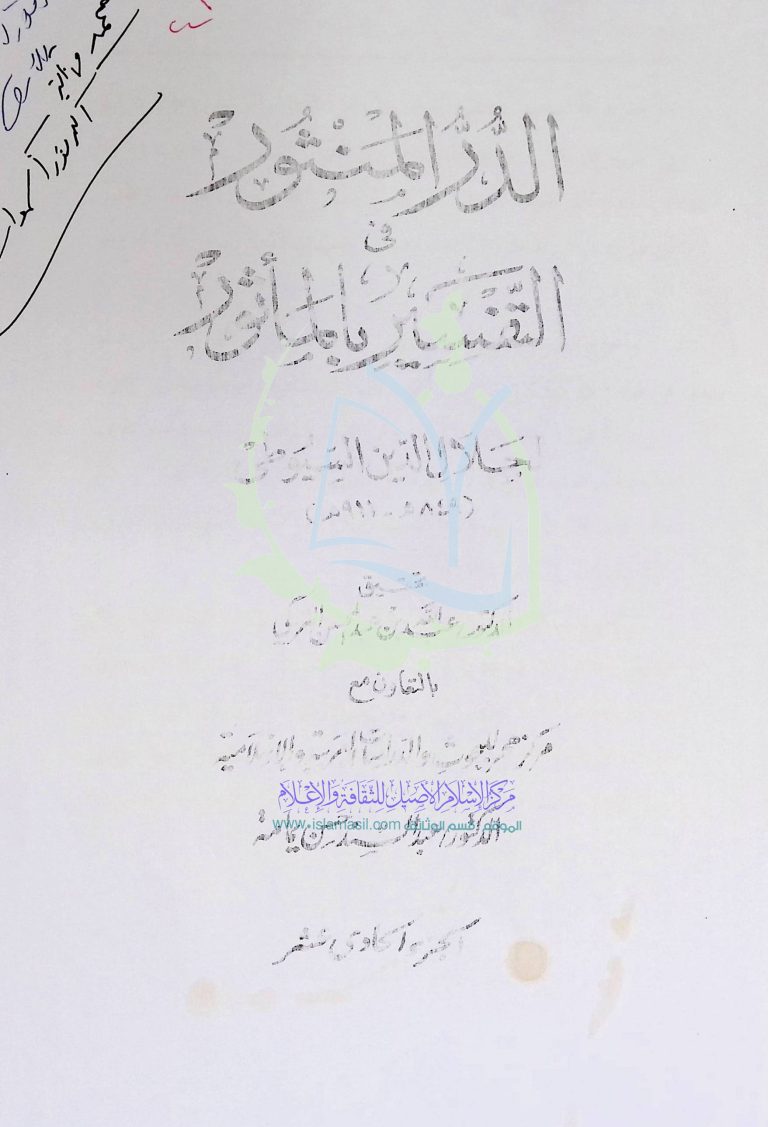 الدُّرُّ المَنْثُور
في
التَّفْسِيرِ بِالمَأْثُور
لجلال الدين السيوطي
(٨٤٩هـ - ٩١١هـ)
تحقيق
الدكتور عبد الله بن عبد المحسن التركي
بالتعاون مع
مركز هجر للبحوث والدراسات العربية والإسلامية
مركز الإسلام الأصيل للثقافة والإعلام
الموقع: قسم الوثائق www.islamasil.com
الدكتور عبد السند حسن يمامة
الجزء الحادي عشر